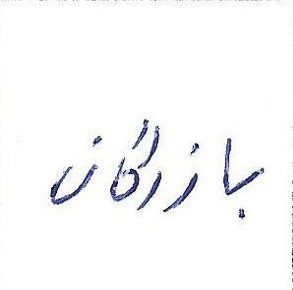 بازرگان